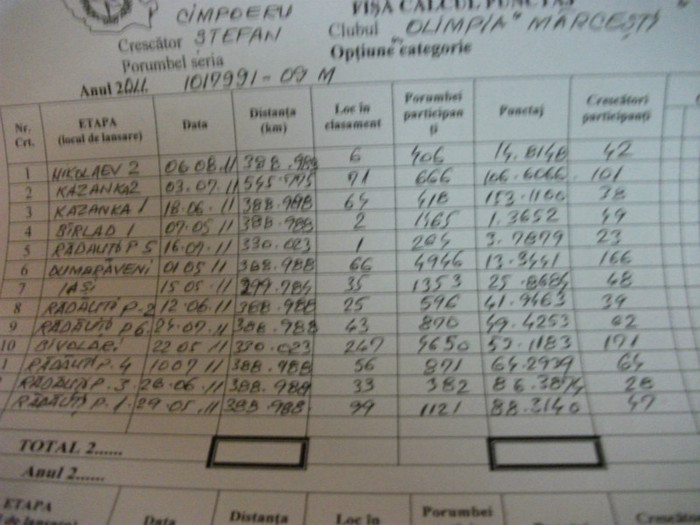 FIȘA CALCUL PUNCTAJ
CÎMPOERU
Crescător ȘTEFAN Clubul OLIMPIA" MĂRCEȘTI
Porumbel seria Opțiune categorie
Anul 2011 1017991-09 M
Nr. Crt. ETAPA (locul de lansare) Data Distanța (km) Loc în clasament Porumbei participan ți Punctaj Crescători participanți
1 NIKOLAEV 2 06.08.11 388.988 6 406 14.8148 42
2 KAZANKA 2 03.07.11 545.775 71 666 106.6066 101
3 KAZANKA 1 18.06.11 388.988 64 418 153.1100 38
4 BÎRLAD 1 07.05.11 388.988 2 1465 1.3652 49
5 RĂDĂUȚI P 5 16.07.11 330.023 1 264 3.7879 23
6 01.05.11 388.988 66 4946 13.3441 166
7 IAȘI 15.05.11 299.784 35 1353 25.8684 48
8 RĂDĂUȚI P.2 12.06.11 388.988 25 596 41.9463 39
9 RĂDĂUȚI P.6 24.07.11 388.988 43 870 49.4253 62
10 BIVOLARI 22.05.11 330.023 247 4650 53.1183 171
RĂDĂUȚI P.4 10.07.11 388.988 56 871 64.2939 64
RĂDĂUȚI P.3 26.06.11 388.988 33 382 86.3874 28
RĂDĂUȚI P.1 29.05.11 388.988 99 1121 88.3140 47
TOTAL 2......
Anul 2......
ETAPA Data Distanța Loc în Porumbei